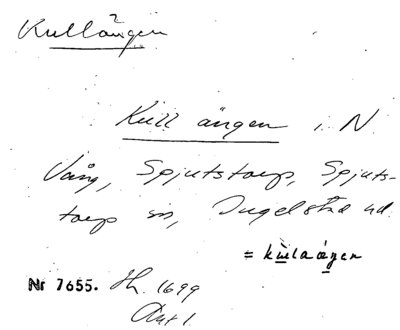 Kullängen
Kull ängen i N
Vång, Spjutstorp, Spjuts-
torp sn, Ingelstad hd.
= kullaängen
Nr 7655. Hh. 1699
Akt 1.